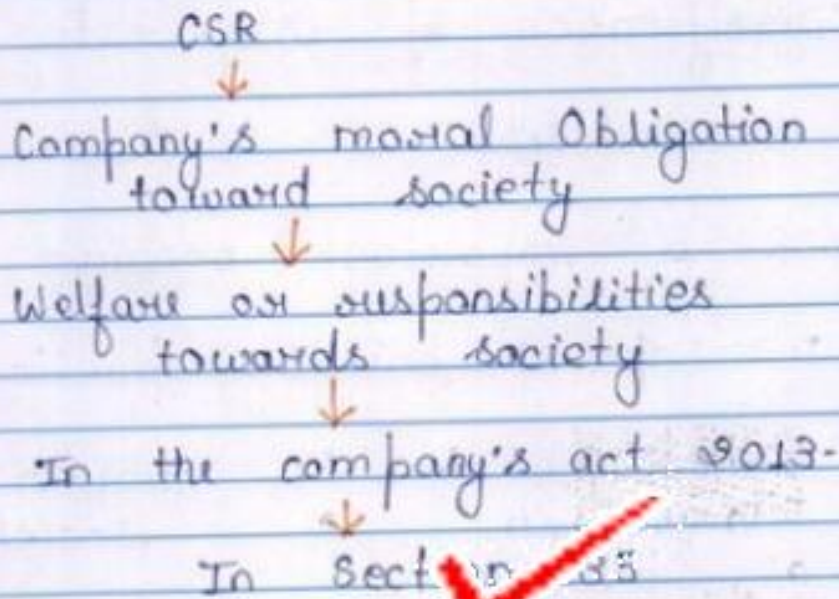 CSR
Company's moral Obligation
toward society
Welfare or responsibilities
towards society
In the company's act 2013-
In